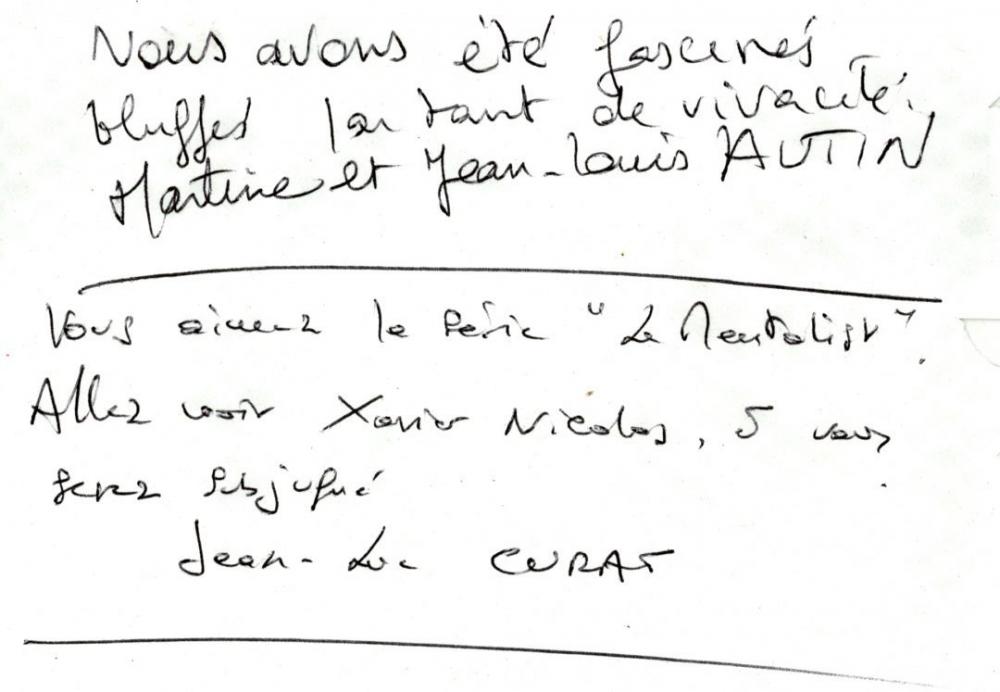 Nous avons été fascinés,
bluffés par tant de vivacité.
Martine et Jean-Louis AUTIN
Vous aimez la série "Le Mentalist".
Allez voir Xavier Nicolas, vous
serez subjugué.
Jean-Luc CURAT